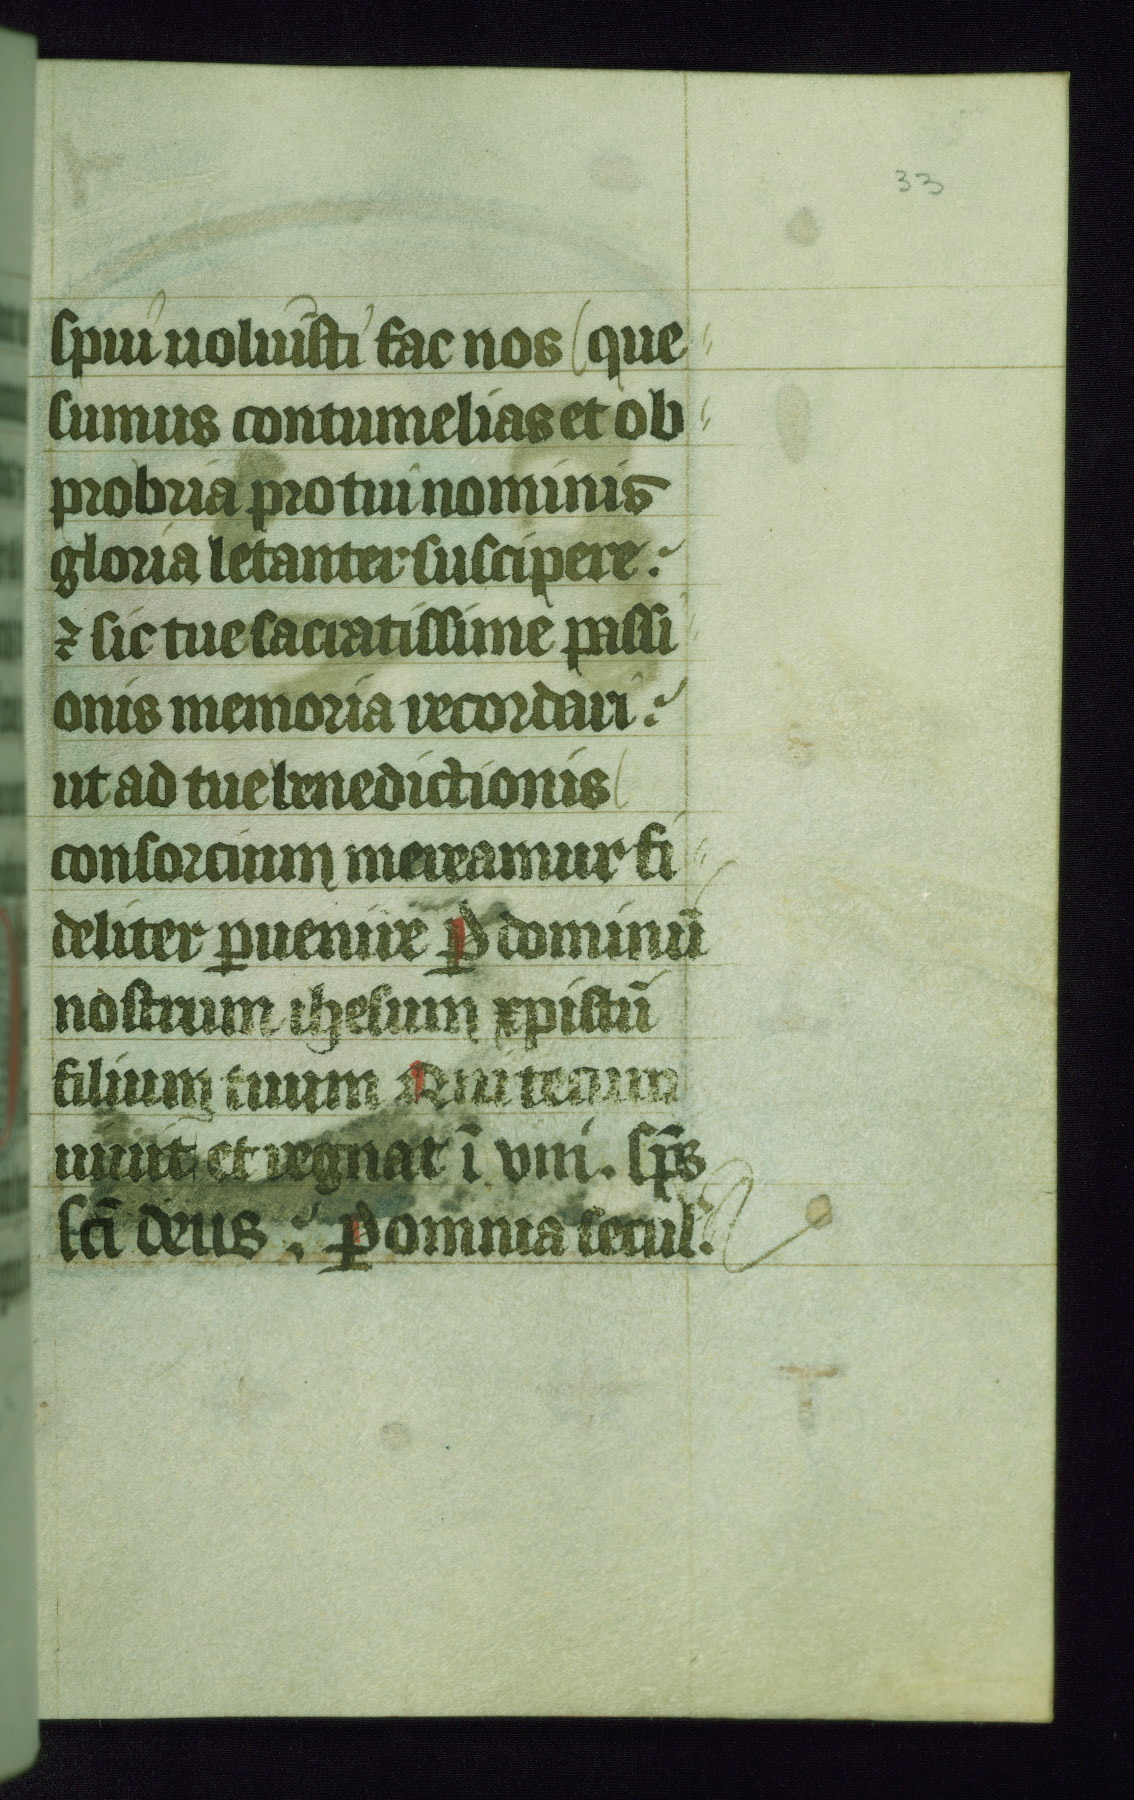 33
spui uoluisti fac nos que
sumus contumelias et ob
probria pro tui nominis
gloria letanter suscipere :
⁊ sic tue sacratissime passi
onis memoria recordari :
ut ad tue benedictionis
consorcium mereamur fi
deliter ꝑuenire Ꝑ dominū
nostrum ihesum xpistū
filium tuum Qui tecum
uiuit et regnat ī vni . sp̄s
sc̄i deus ; Ꝑ omnia secul .